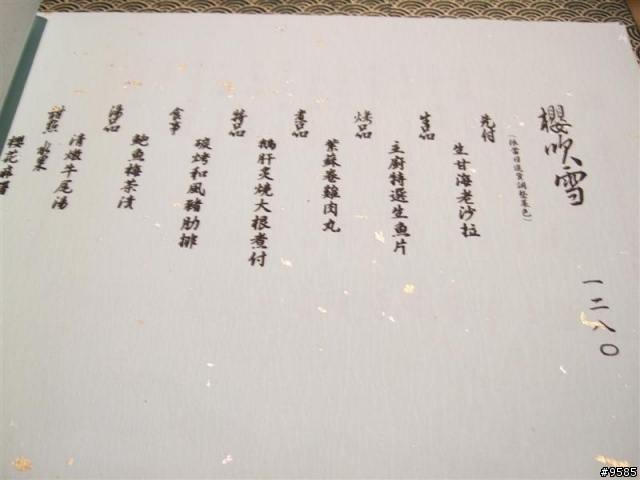 櫻吹雪
一二八〇
(依當日進貨調整菜色)
先付
生甘海老沙拉
生品
主廚特選生魚片
烤品
紫蘇卷雞肉丸
煮品
鵝肝炙燒大根煮付
特品
碳烤和風豬肋排
食事
鮑魚梅茶漬
湯品
清燉牛尾湯
甜點 水果
櫻花麻糬
#9585